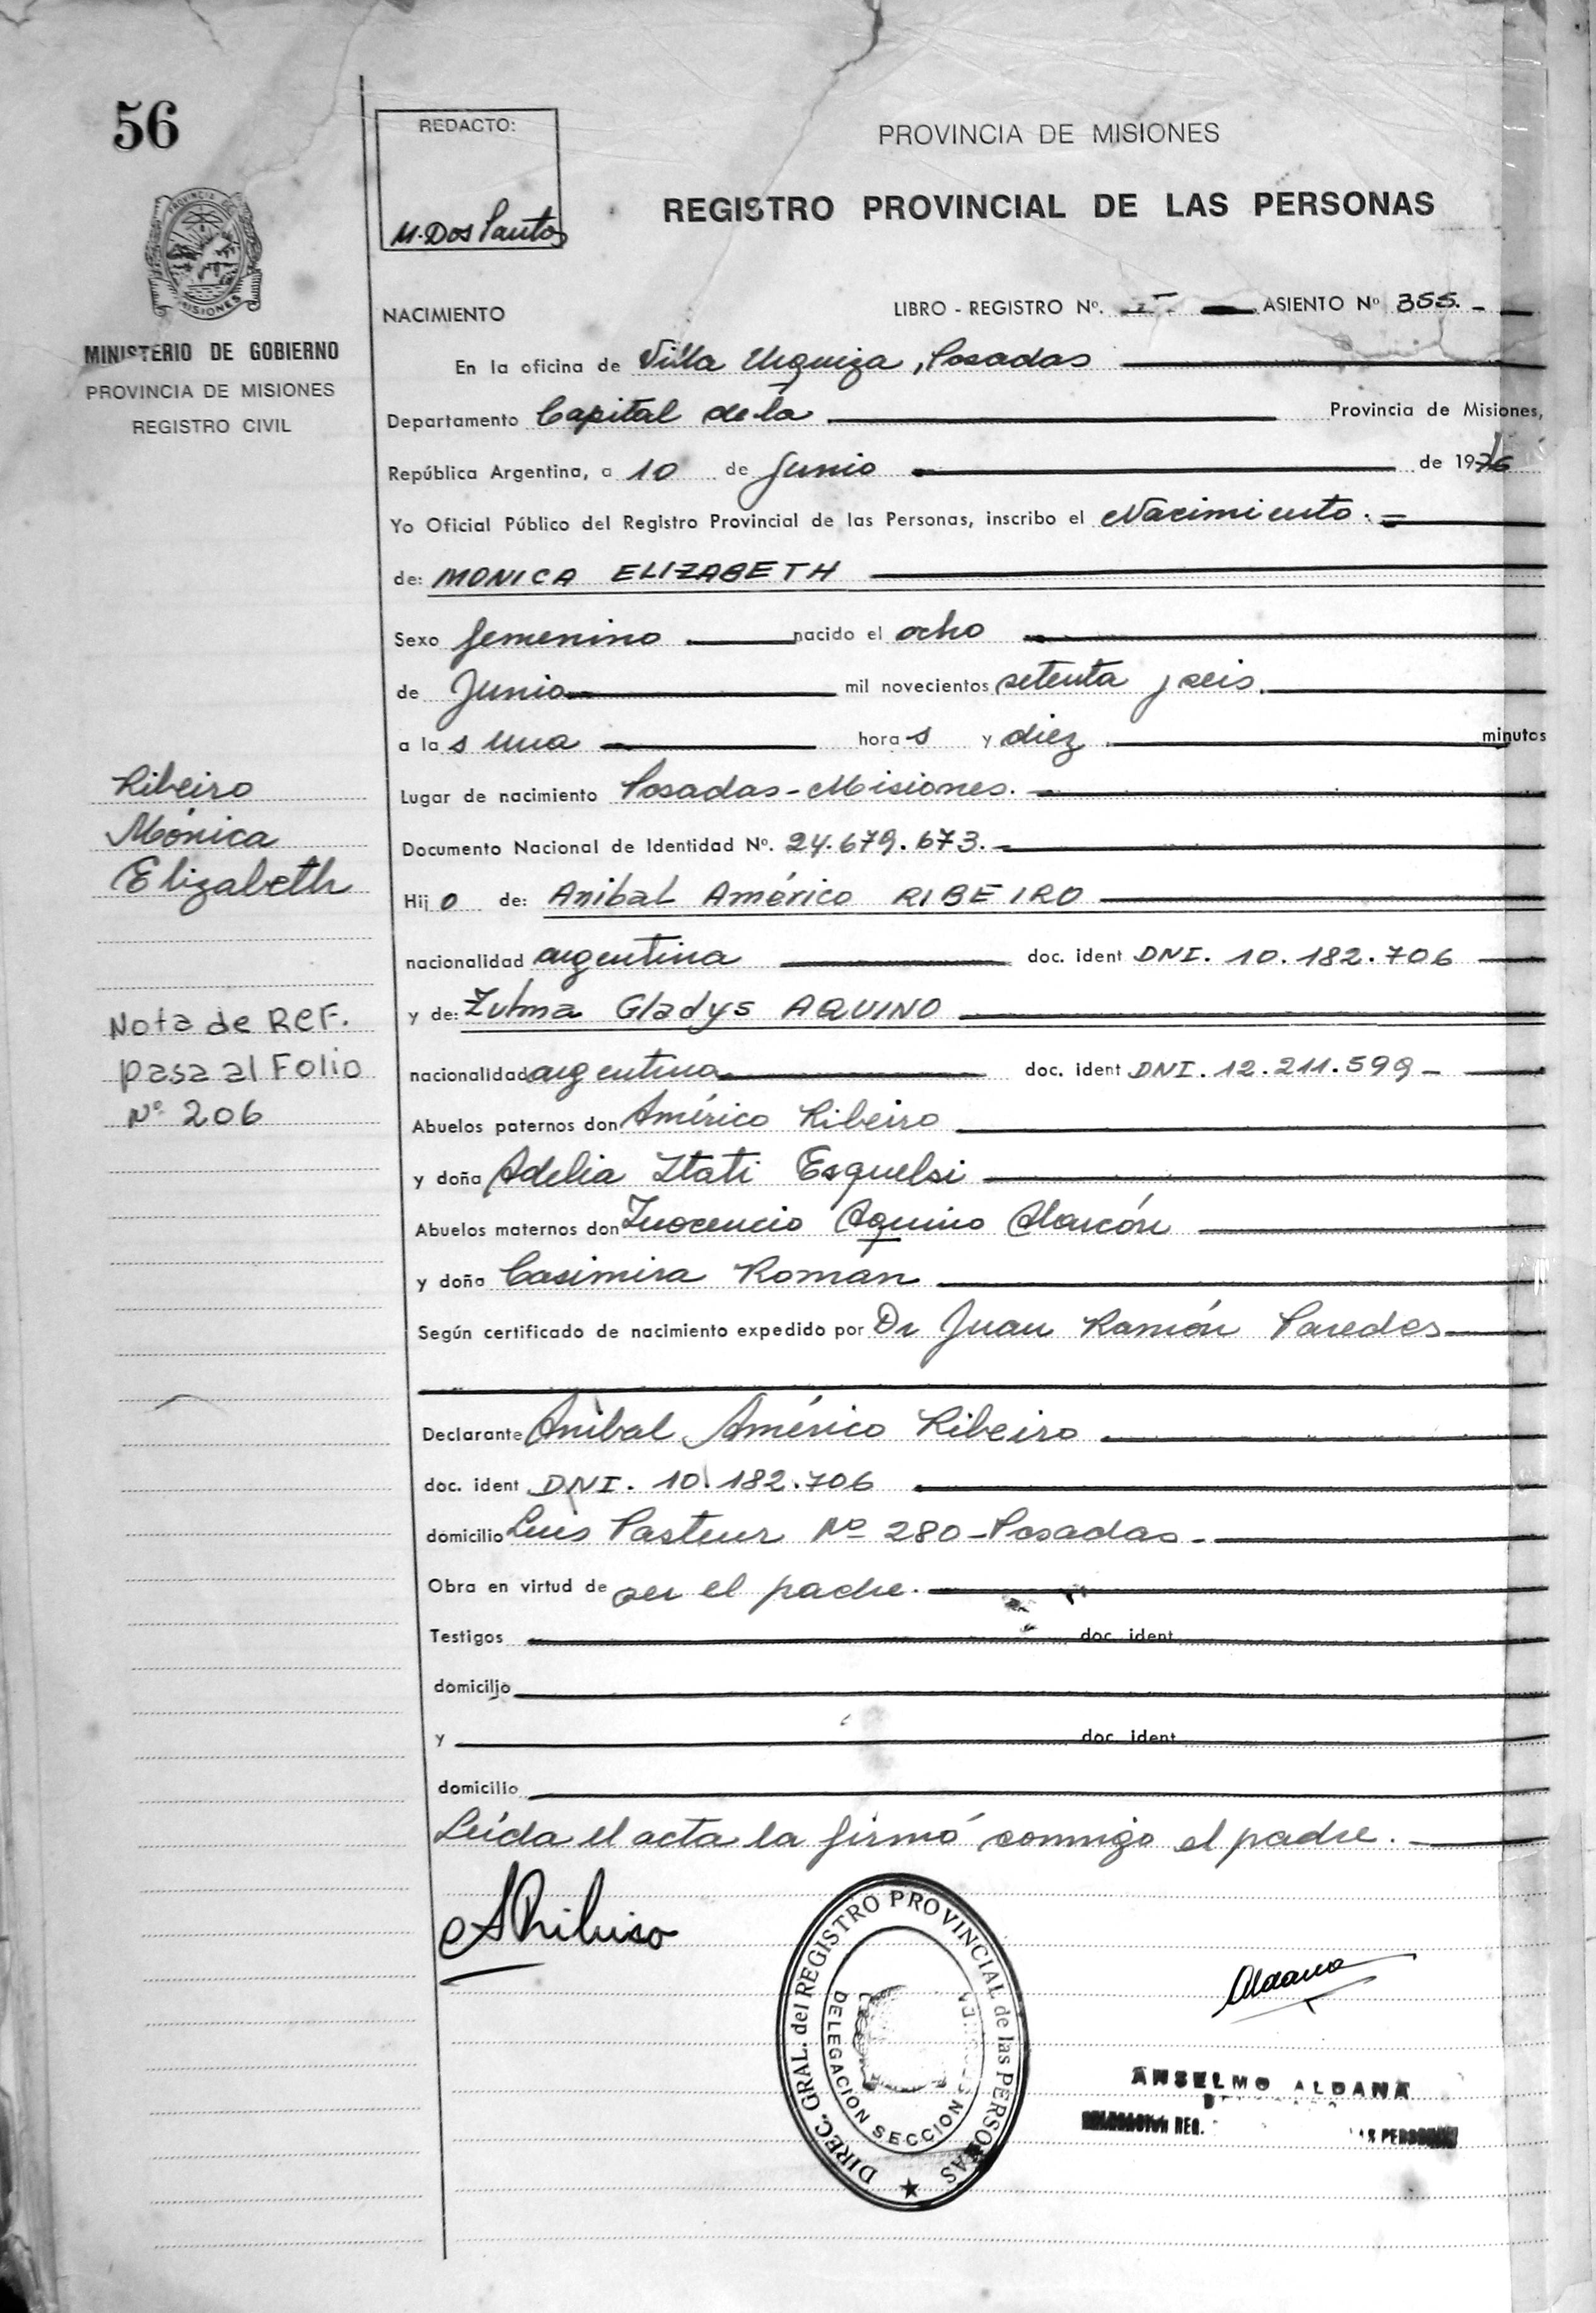 56
REDACTO:
M. Dos Santos
PROVINCIA DE MISIONES
REGISTRO PROVINCIAL DE LAS PERSONAS
PROVINCIA DE
MISIONES
MINISTERIO DE GOBIERNO
PROVINCIA DE MISIONES
REGISTRO CIVIL
NACIMIENTO
LIBRO - REGISTRO Nº. I ASIENTO Nº 355. -
En la oficina de Villa Urquiza, Posadas
Departamento Capital de la Provincia de Misiones,
República Argentina, a 10 de Junio de 1976
Yo Oficial Público del Registro Provincial de las Personas, inscribo el Nacimiento. =
de: MONICA ELIZABETH
Sexo femenino nacido el ocho
de Junio mil novecientos setenta y seis.
a la s una hora s y diez minutos
Lugar de nacimiento Posadas - Misiones.
Documento Nacional de Identidad Nº. 24.679.673. -
Hij o de: Anibal Américo RIBEIRO
nacionalidad argentina doc. ident DNI. 10.182.706
y de: Zulma Gladys AQUINO
nacionalidad argentina doc. ident DNI. 12.211.599 -
Abuelos paternos don Américo Ribeiro
y doña Adelia Itati Esquelsi
Abuelos maternos don Inocencio Aquino Alarcón
y doña Casimira Roman
Según certificado de nacimiento expedido por Dr Juan Ramón Paredes
Declarante Anibal Américo Ribeiro
doc. ident DNI. 10.182.706
domicilio Luis Pasteur Nº 280 - Posadas -
Obra en virtud de ser el padre.
Testigos doc. ident
domicilio
y doc. ident
domicilio
Leída el acta la firmó conmigo el padre.
Ribeiro
Mónica
Elizabeth
Nota de Ref.
pasa al Folio
Nº 206
ARibeiro
DIREC. GRAL. del REGISTRO PROVINCIAL de las PERSONAS
DELEGACION SECCION
Aldana
ANSELMO ALDANA
DELEGACION REG. AS PERSONAS